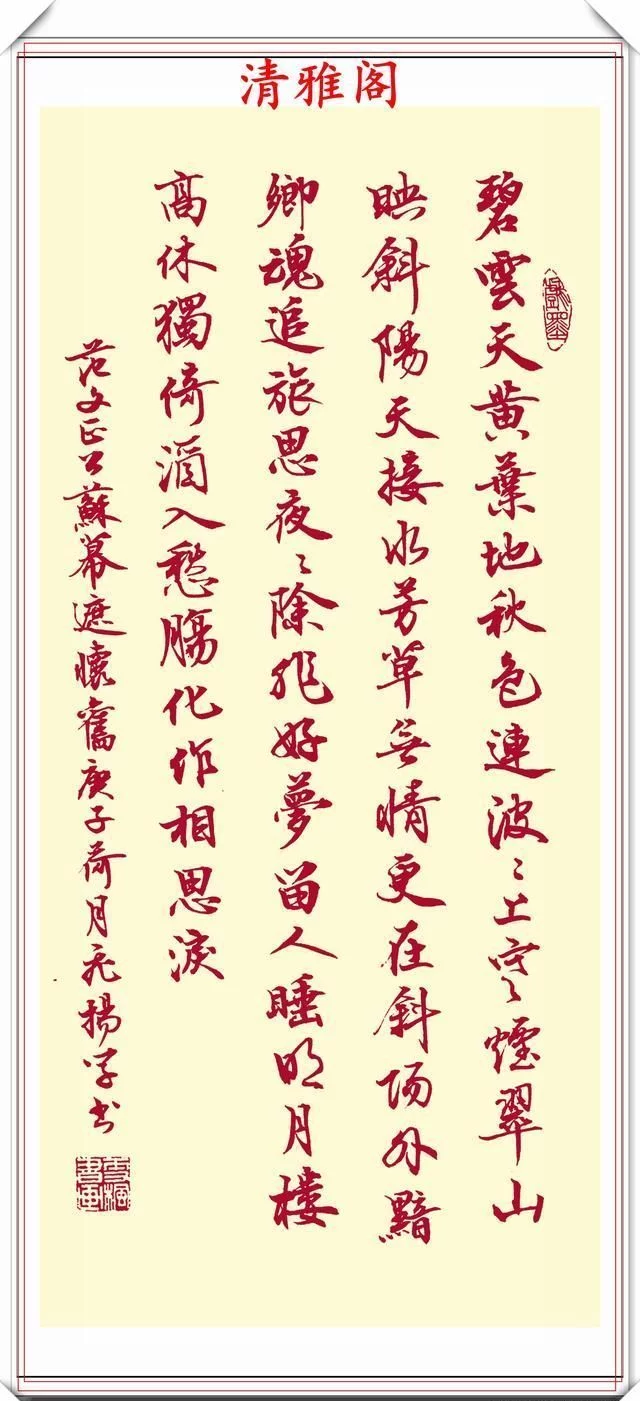 清雅阁
碧雲天黄葉地秋色連波〻上寒煙翠山
映斜陽天接水芳草無情更在斜陽外黯
鄉魂追旅思夜〻除非好夢留人睡明月樓
高休獨倚酒入愁腸化作相思淚
范文正公蘇幕遮懷舊庚子荷月 揚學书